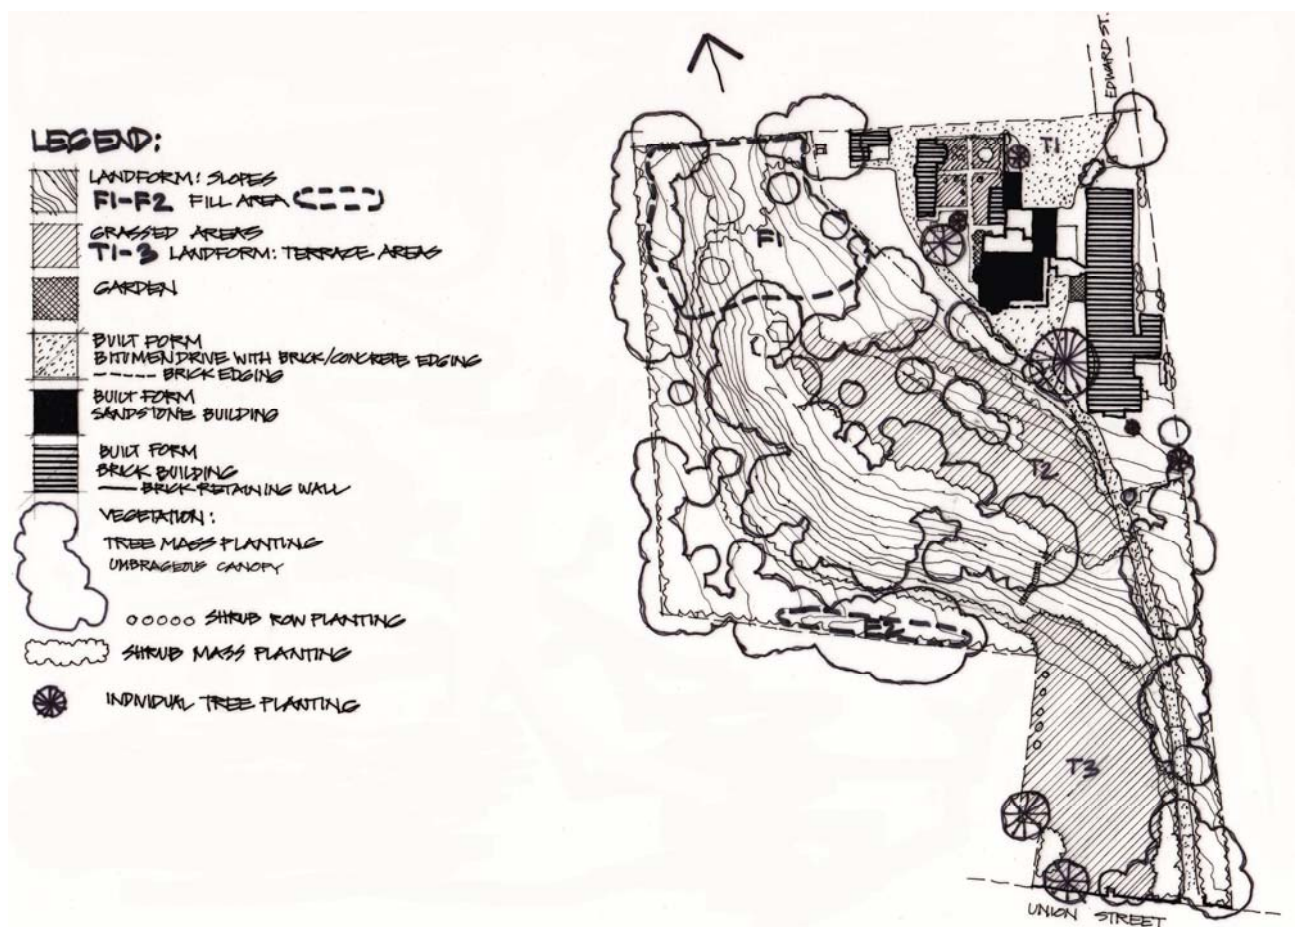 LEGEND:
LANDFORM: SLOPES
F1-F2 FILL AREA
GRASSED AREAS
T1-3 LANDFORM: TERRACE AREAS
GARDEN
BUILT FORM
BITUMEN DRIVE WITH BRICK/CONCRETE EDGING
BRICK EDGING
BUILT FORM
SANDSTONE BUILDING
BUILT FORM
BRICK BUILDING
BRICK RETAINING WALL
VEGETATION:
TREE MASS PLANTING
UMBRAGEOUS CANOPY
SHRUB ROW PLANTING
SHRUB MASS PLANTING
INDIVIDUAL TREE PLANTING
EDWARD ST.
T1
F1
T2
F2
T3
UNION STREET